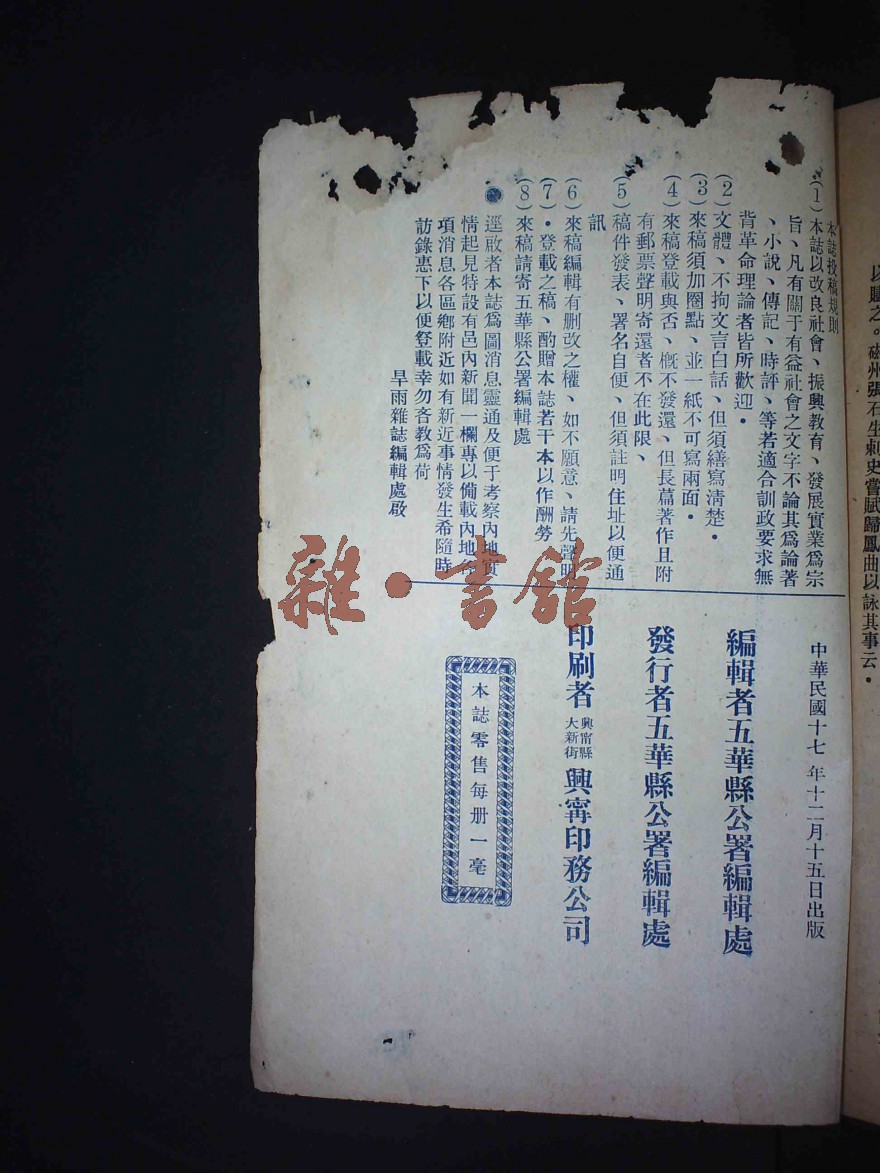 以賦之。磁州張石生刺史嘗賦歸鳳曲以詠其事云。
本誌投稿規則
(1)本誌以改良社會、振興教育、發展實業爲宗
旨、凡有關于有益社會之文字不論其爲論著
、小說、傳記、時評、等若適合訓政要求無
背革命理論者皆所歡迎。
(2)文體、不拘文言白話、但須繕寫清楚。
(3)來稿須加圈點、並一紙不可寫兩面。
(4)來稿登載與否、槪不發還、但長篇著作且附
有郵票聲明寄還者不在此限、
(5)稿件發表、署名自便、但須註明住址以便通
訊
(6)來稿編輯有删改之權、如不願意、請先聲明
(7)。登載之稿、酌贈本誌若干本以作酬勞
(8)來稿請寄五華縣公署編輯處
●逕啟者本誌爲圖消息靈通及便于考察內地實
情起見特設有邑內新聞一欄專以備載內地各
項消息各區鄉附近如有新近事情發生希隨時
訪錄惠下以便登載幸勿吝教爲荷
旱雨雜誌編輯處啟
中華民國十七年十二月十五日出版
編輯者五華縣公署編輯處
發行者五華縣公署編輯處
印刷者 興甯縣大新街 興甯印務公司
本誌零售每册一毫
雜·書館